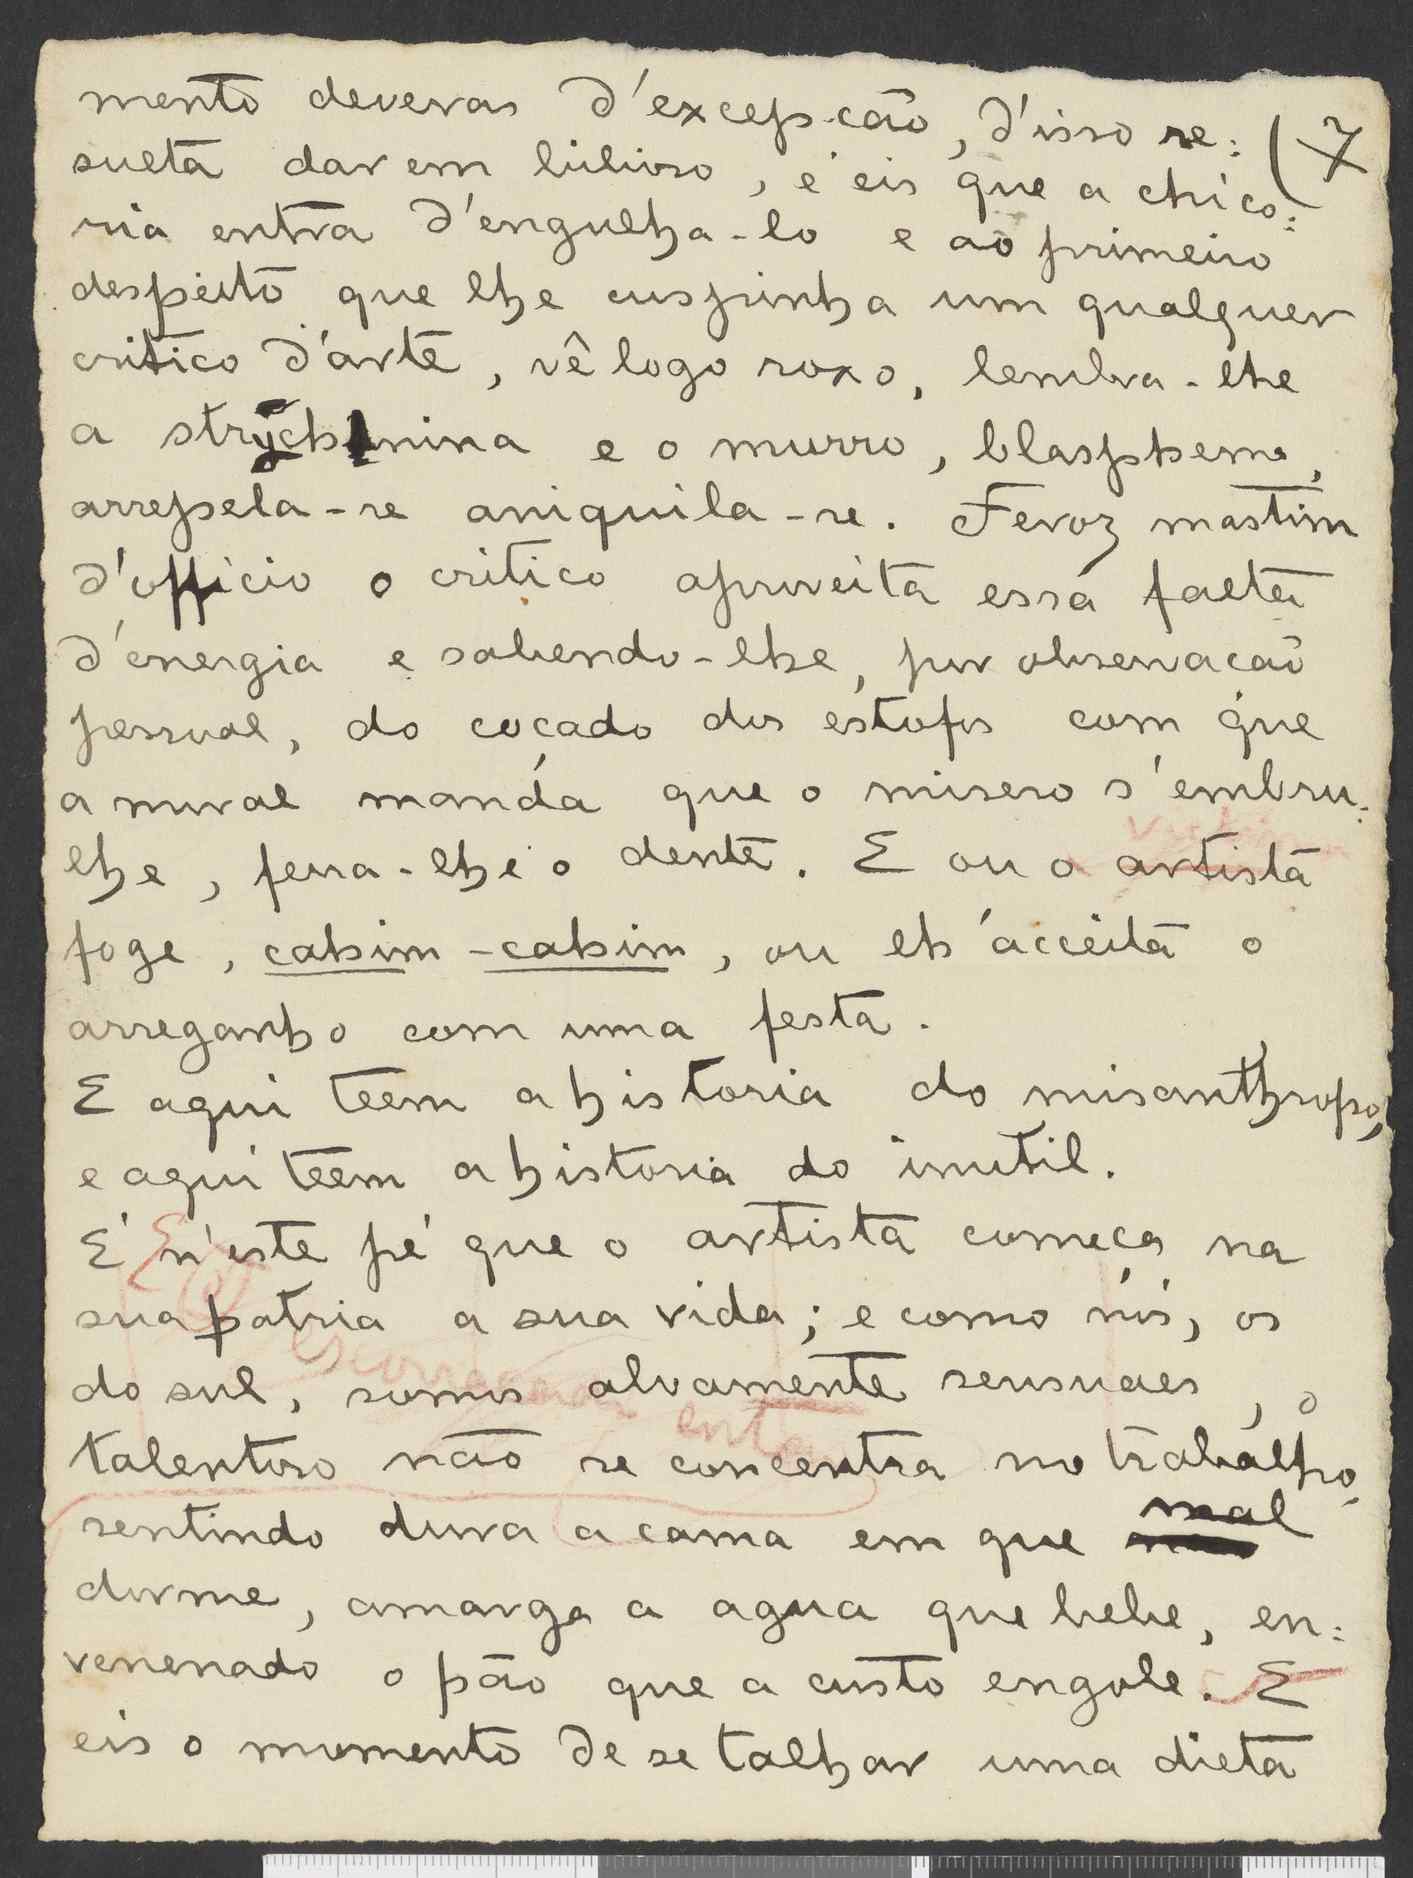 mento deveras d'excepção, d'isso re= (7
sulta dar em bilioso, e eis que a chico=
ria entra d'engulha-lo e ao primeiro
despeito que lhe cuspinha um qualquer
critico d'arte, vê logo roxo, lembra-lhe
a strychnina e o murro, blasphema,
arrepela-se aniquila-se. Feroz mastim
d'officio o critico aproveita essa falta
d'energia e sabendo-lhe, por observação
pessoal, do coçado dos estofos com que
a moral manda que o misero s'embru=
lhe, ferra-lhe o dente. E ou o artista
foge, cahim-cahim, ou lh'acceita o
arreganho com uma festa.
E aqui teem a historia do misanthropo,
e aqui teem a historia do inutil.
É n'este pé que o artista começa na
sua patria a sua vida; e como nós, os
do sul, somos alvamente sensuaes, o
talentoso não se concentra no trabalho
sentindo dura a cama em que mal
dorme, amarga a agua que bebe, en=
venenado o pão que a custo engole. E
eis o momento de se talhar uma dieta